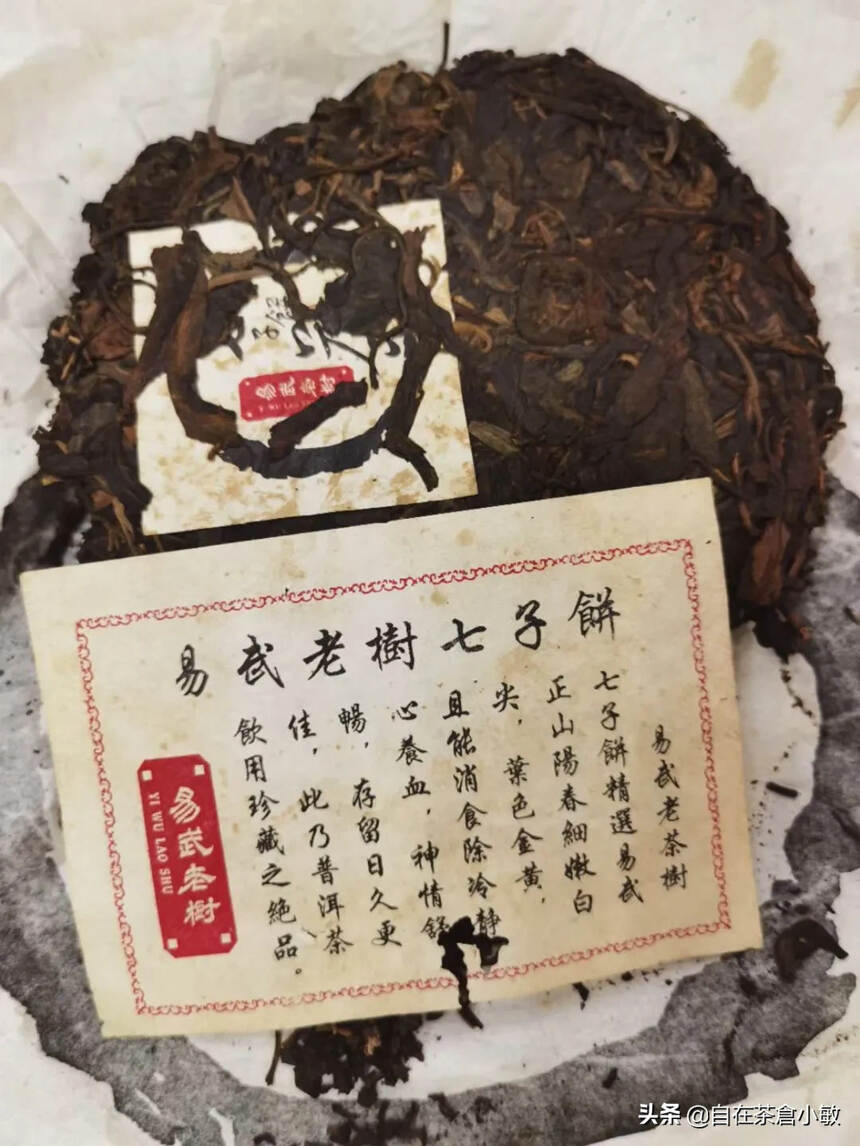 子餅
易武老樹
易武老樹七子餅
易武老茶樹
七子餅精選易武
正山陽春細嫩白
尖，葉色金黄，
且能消食除冷静
心養血，神情舒
暢，存留日久更
佳，此乃普洱茶
飲用珍藏之絶品。
易武老樹
YI WU LAO SHU
头条 @自在茶倉小敏